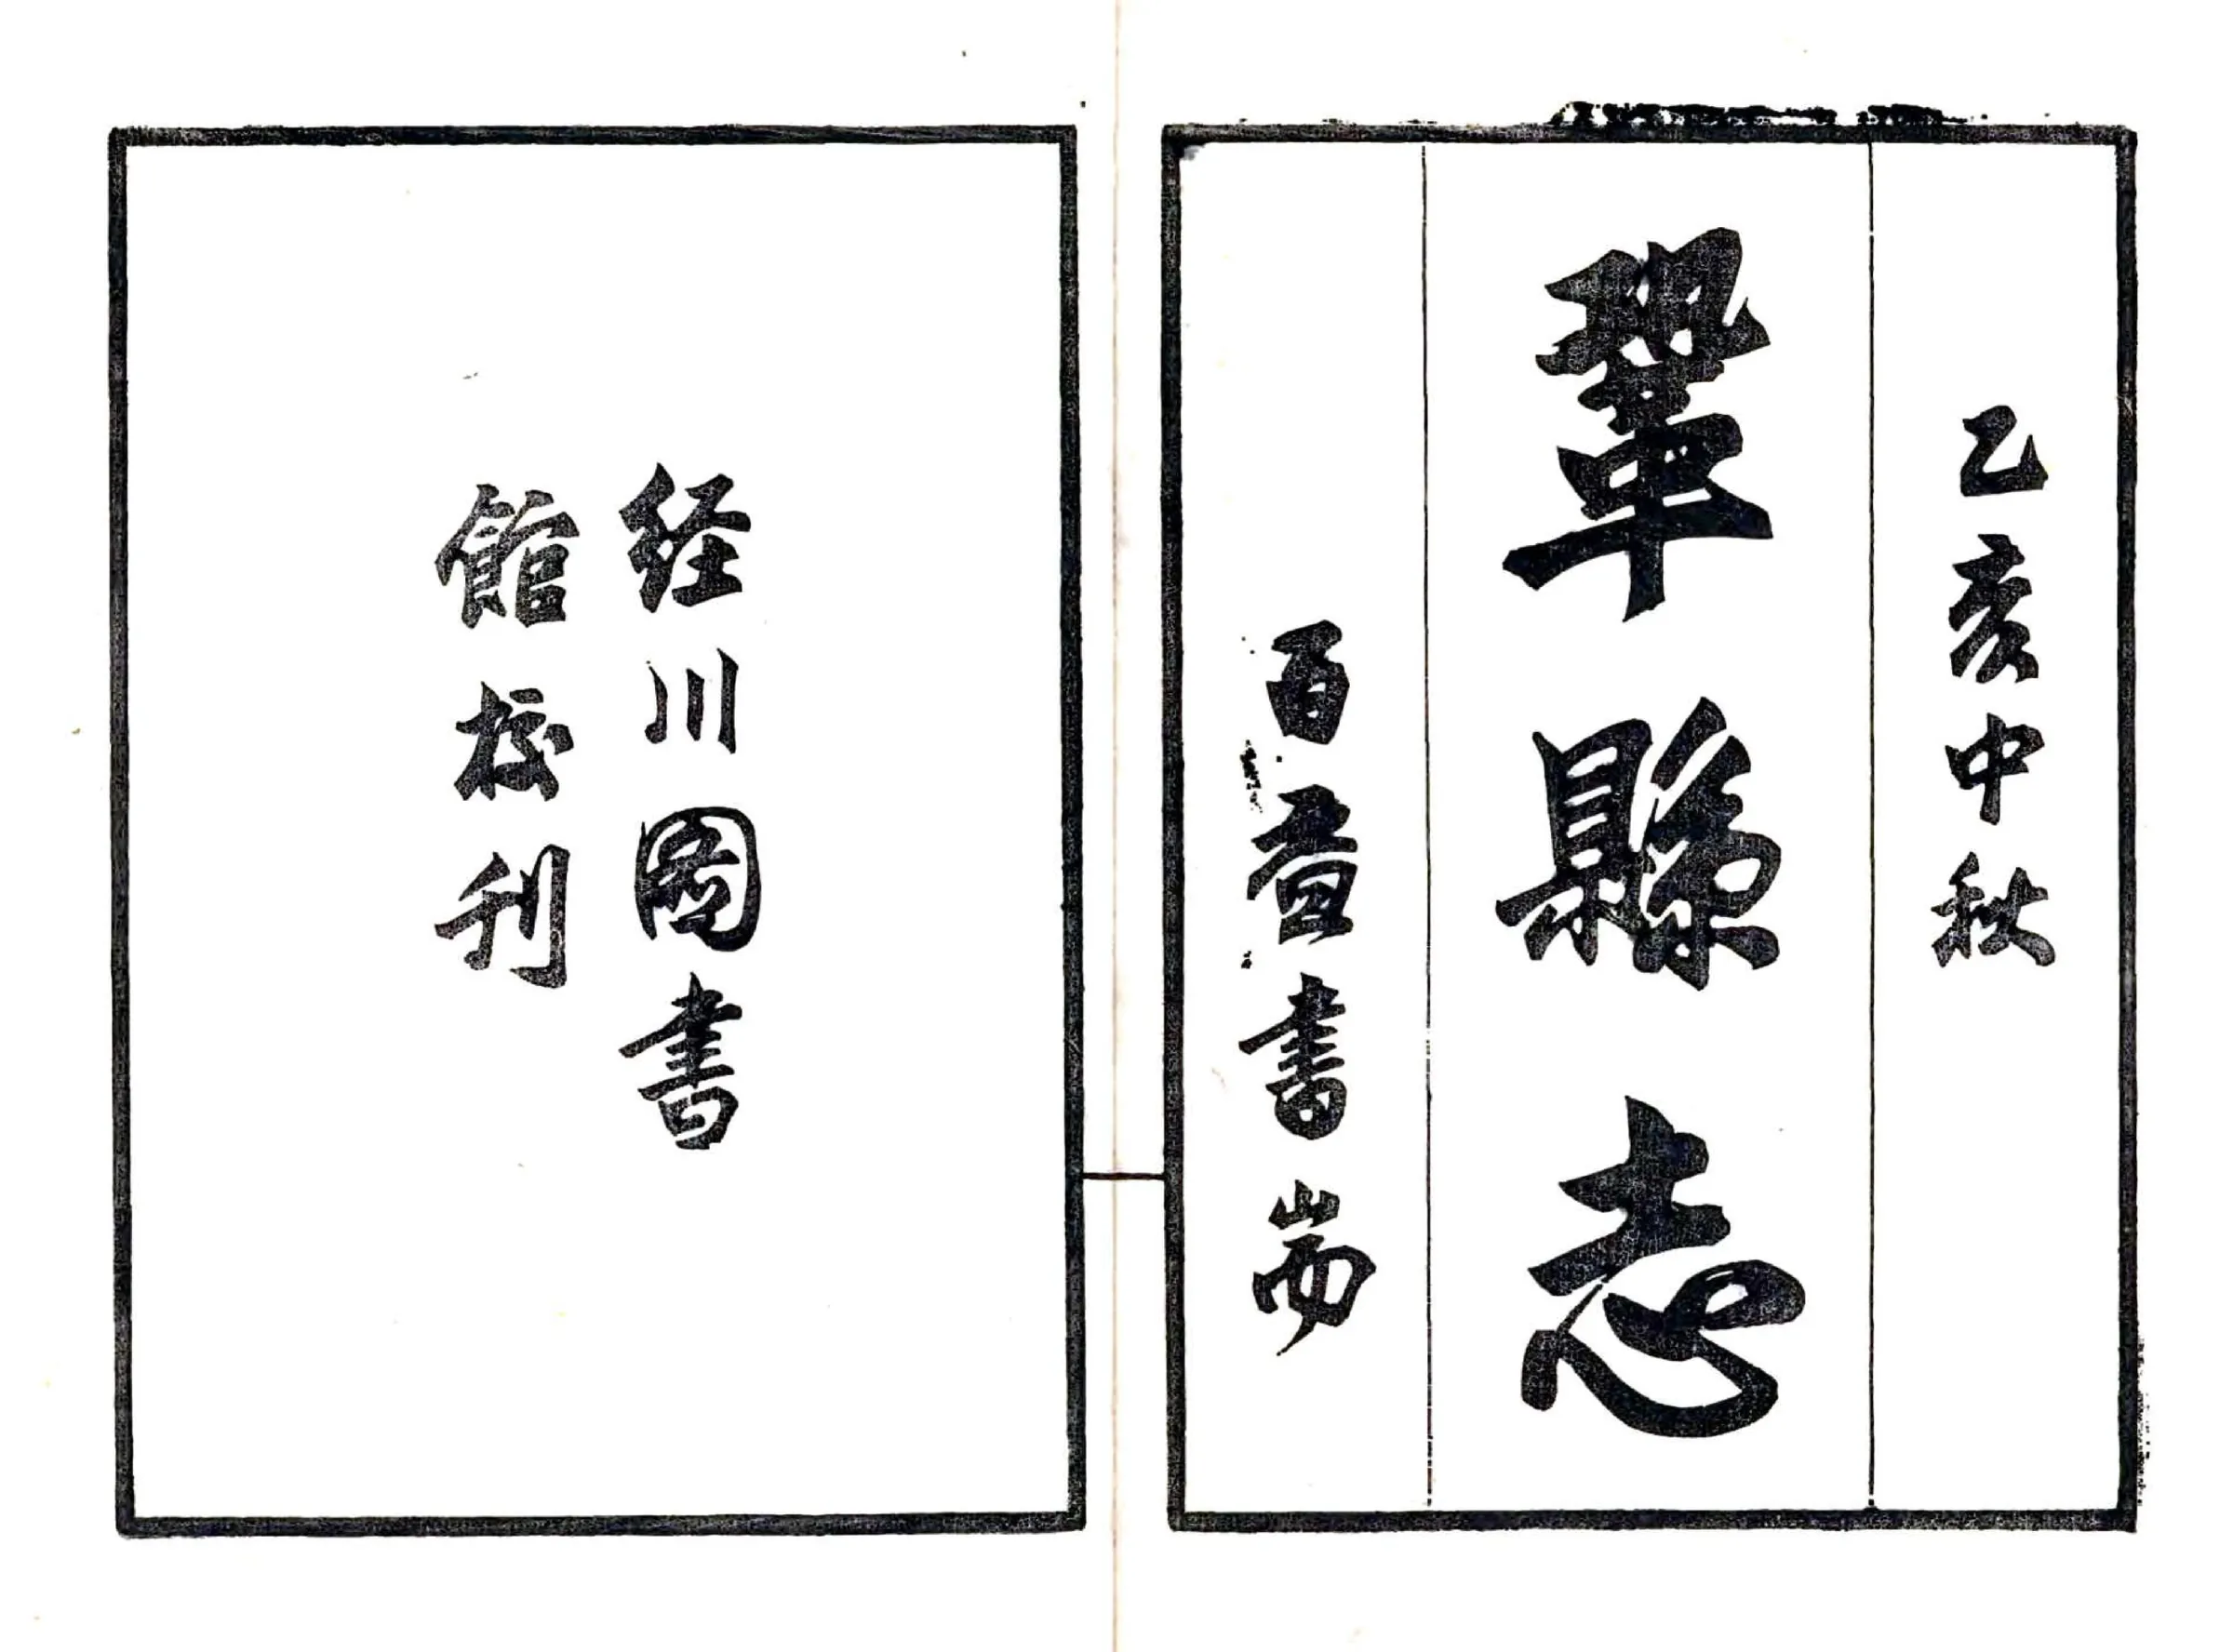 乙亥中秋
鞏縣志
百書耑
経川圖書
館校刊